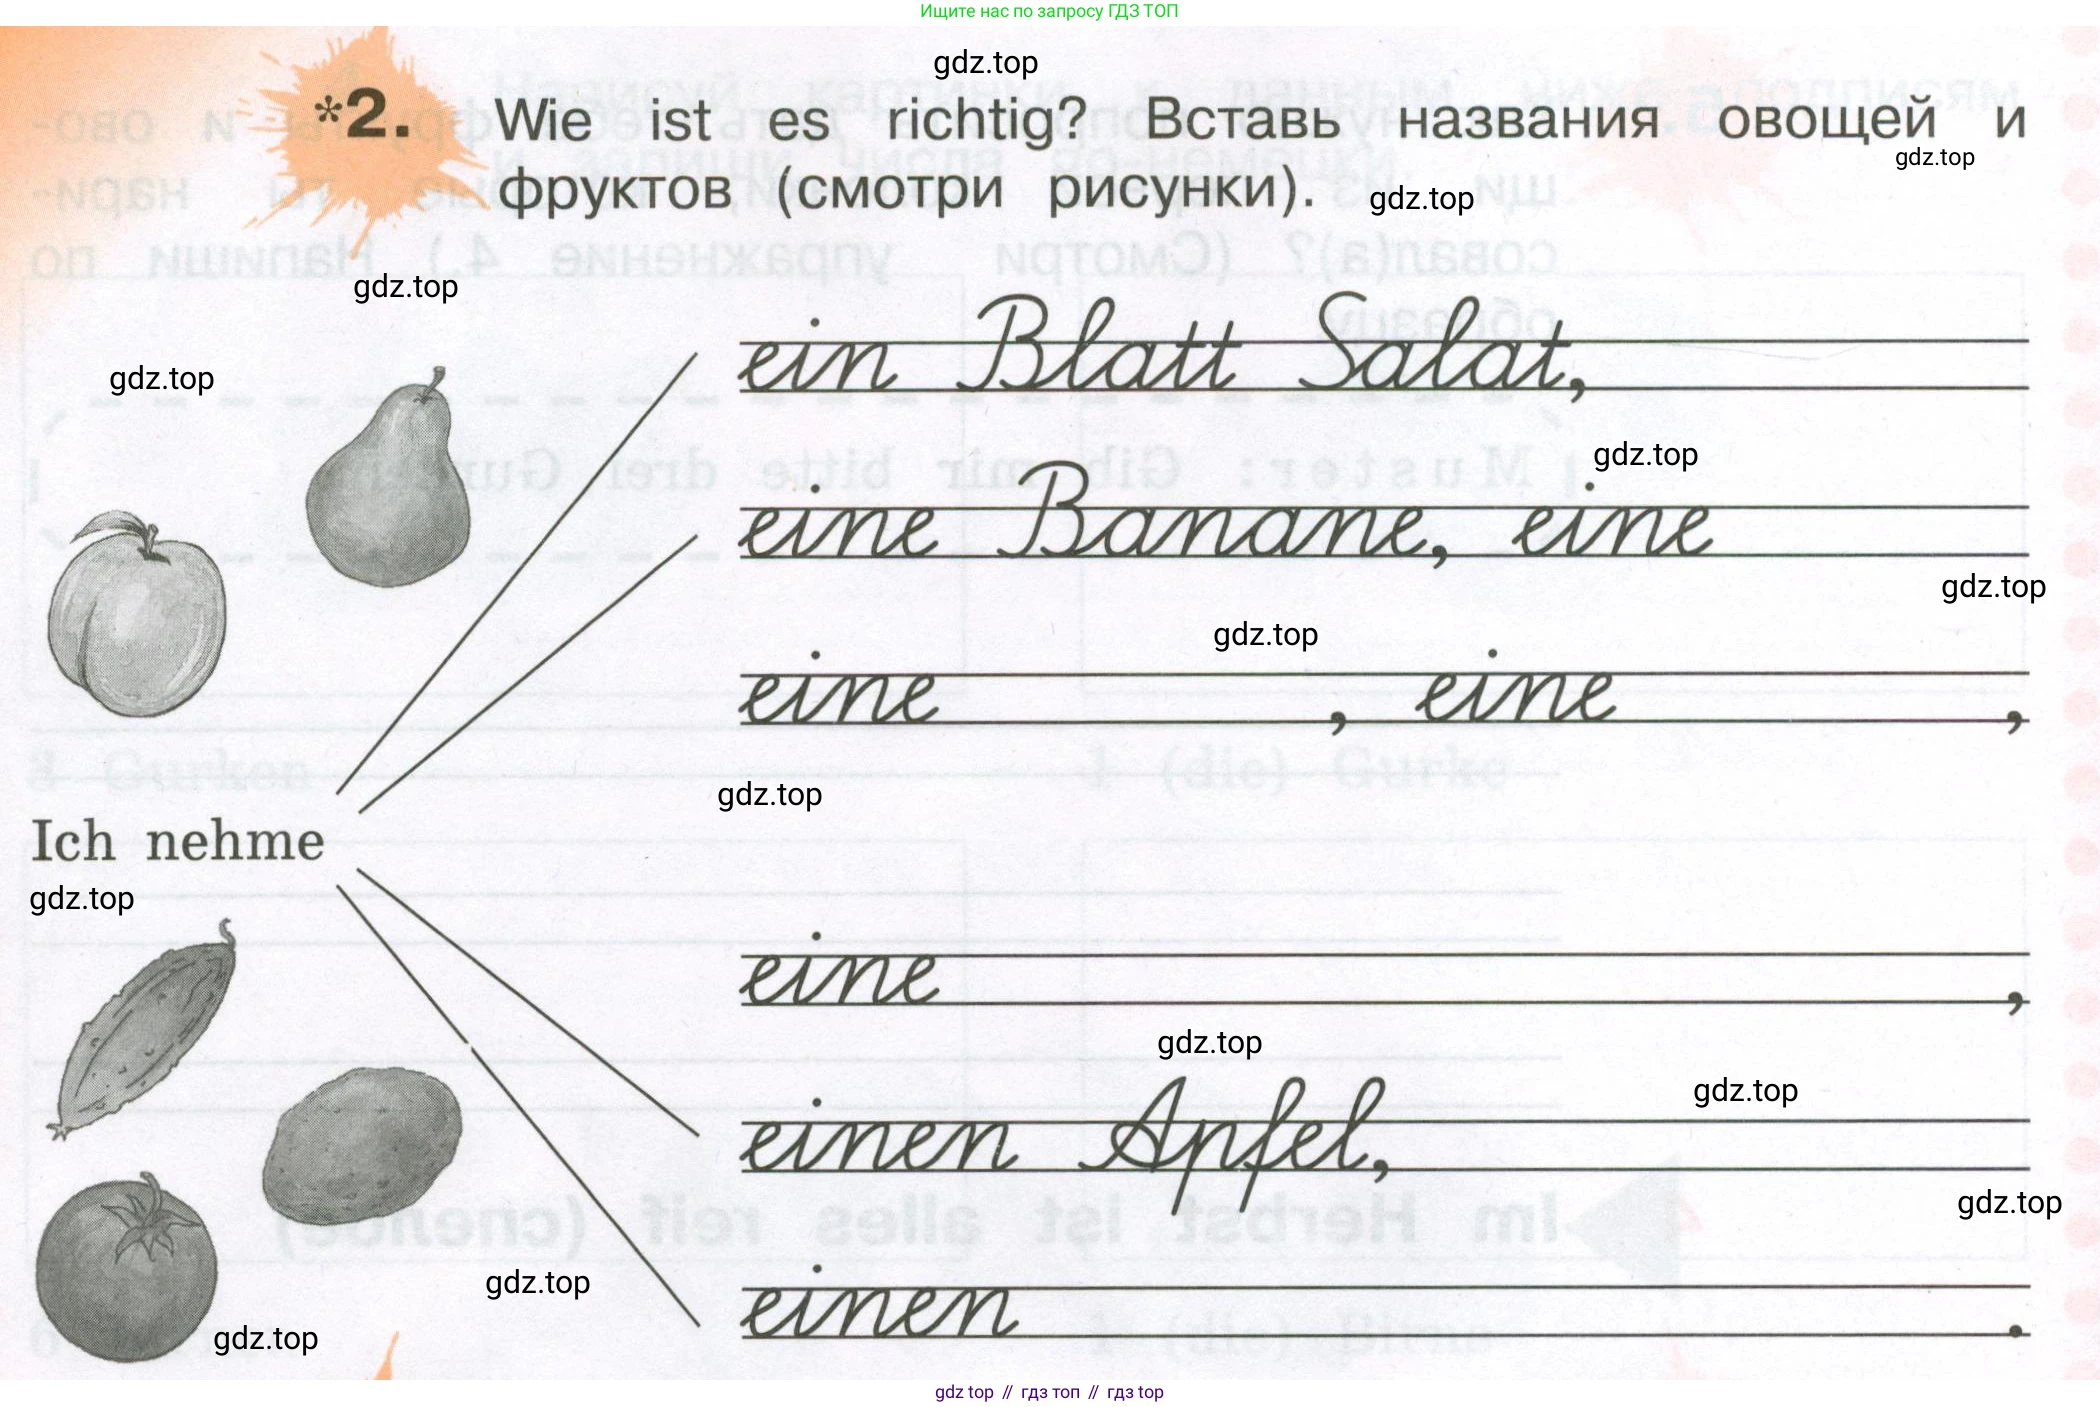 Ищите нас по запросу ГДЗ ТОП
gdz.top
*2. Wie ist es richtig? Вставь названия овощей и
gdz.top
фруктов (смотри рисунки).
gdz.top
gdz.top
ein Blatt Salat,
gdz.top
gdz.top
eine Banane, eine
gdz.top
gdz.top
eine , eine ,
gdz.top
Ich nehme
gdz.top
eine ,
gdz.top
gdz.top
einen Apfel,
gdz.top
gdz.top
einen .
gdz.top
gdz top // гдз топ // гдз top